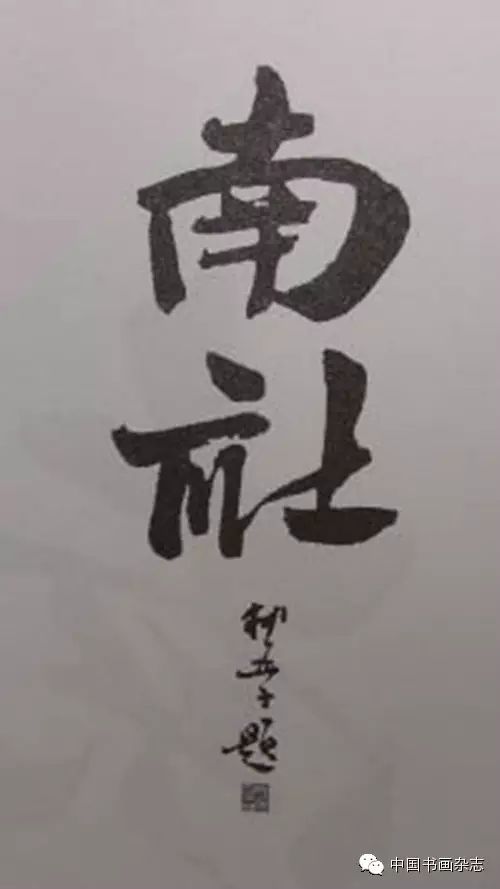 南社
柳亞子題
中国书画杂志